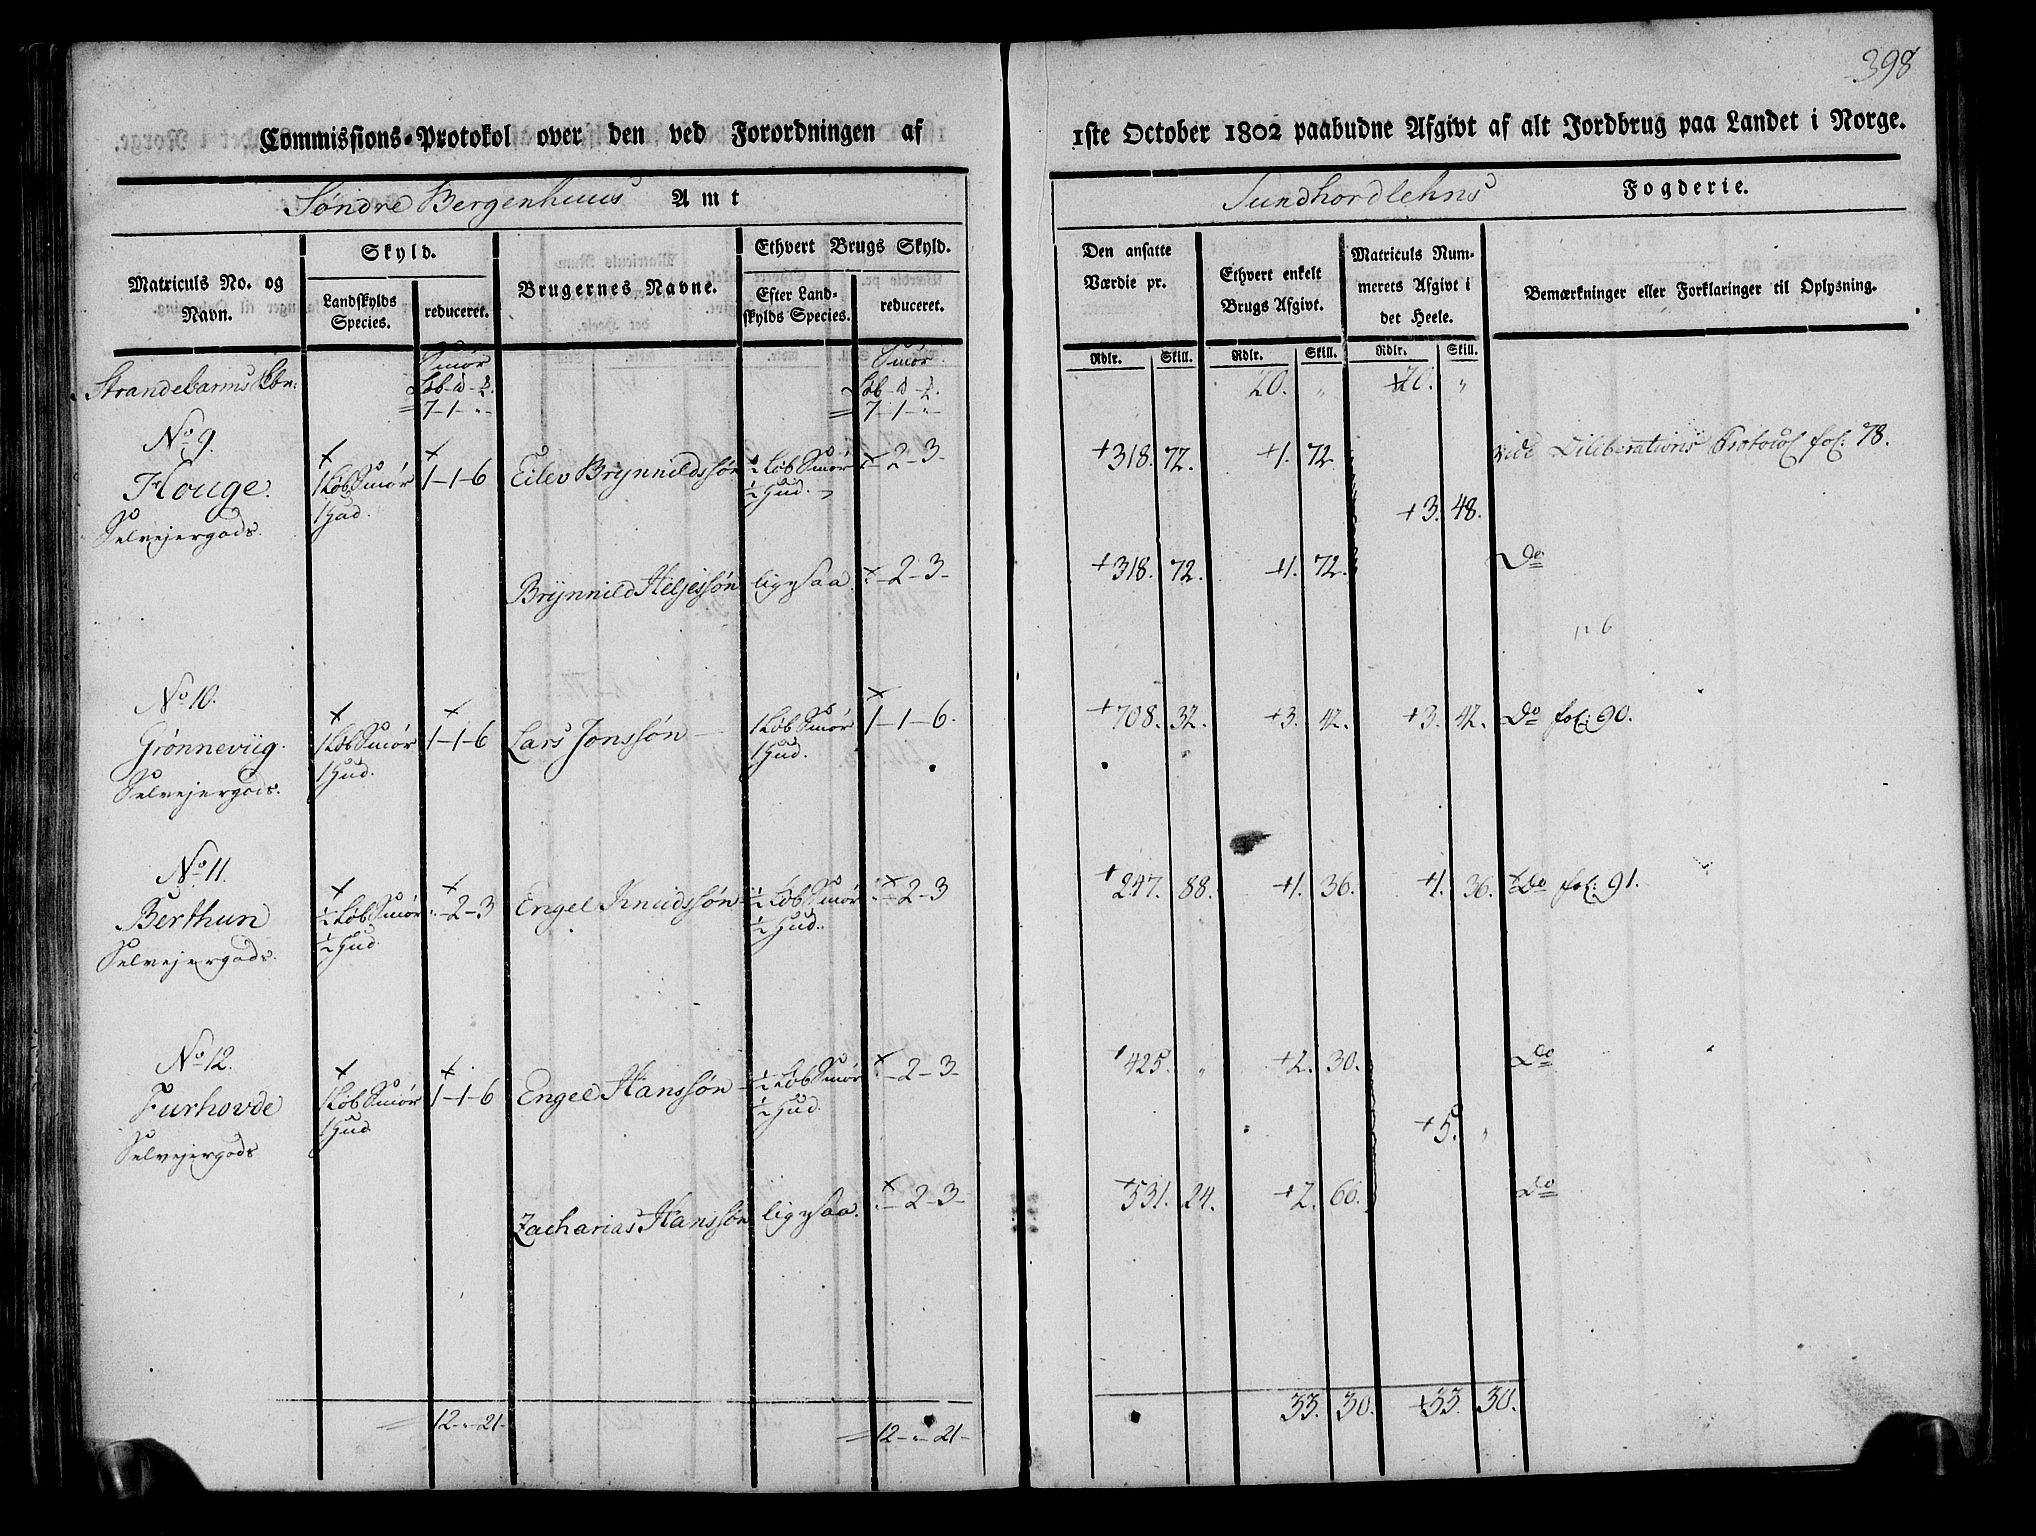 398
Commissions-Protokol over den ved Forordningen af 1ste October 1802 paabudne Afgivt af alt Jordbrug paa Landet i Norge.
Søndre Bergenhuus Amt Sundhordlehns Fogderie.
Matriculs No. og Navn.
Skyld.
Landskylds Species.
reduceret.
Brugernes Navne.
Ethvert Brugs Skyld.
Efter Landskylds Species.
reduceret.
Den ansatte Værdie pr.
Ethvert enkelt Brugs Afgivt.
Matriculs Nummerets Afgivt i det Heele.
Bemærkninger eller Forklaringer til Oplysning.
Rdlr. Skill. Rdlr. Skill. Rdlr. Skill.
Smør Smør
Strandebarms 20. „ 20. „
7-1-„ 7-1-„
No 9.
Houge. 1 Løb Smør 1-1-6 Eilev Brynnildssøn ½ Løb Smør „-2-3- +318. 72. +1. 72 vide Diliberations Protocol fol: 78.
1 Hud. ½ Hud.
Selvejergods. +3. 48.
Brynnild Heljessøn ligesaa. „-2-3- +318. 72. +1. 72. Do
No 10.
Grønneviig. 1 Løb Smør 1-1-6 Lars Jonssøn 1 Løb Smør 1-1-6. +708. 32. +3. 42. +3. 42. Do fol: 90.
1 Hud. 1 Hud.
Selvejergods.
No 11.
Berthun ½ Løb Smør „-2-3 Engel Knudssøn ½ Løb Smør „-2-3 +247. 88. +1. 36. +1. 36. Do fol: 91.
½ Hud ½ Hud.
Selvejergods.
No 12.
Furhovde 1 Løb Smør 1-1-6 Engel Hanssøn ½ Løb Smør „-2-3- +425. „ +2. 30. Do
1 Hud ½ Hud.
Selvejergods +5. „
Zacharias Hanssøn ligesaa. „-2-3- +531. 24. +2. 66. Do
12-„-21- 12-„-21- 33. 30. +33. 30.